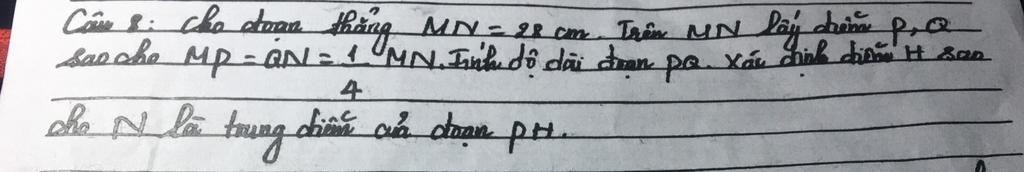 Câu 8: Cho đoạn thẳng MN = 28 cm. Trên MN lấy điểm P, Q
sao cho MP = QN = 1/4 MN. Tính độ dài đoạn PQ. Xác định điểm H sao
cho N là trung điểm của đoạn PH.